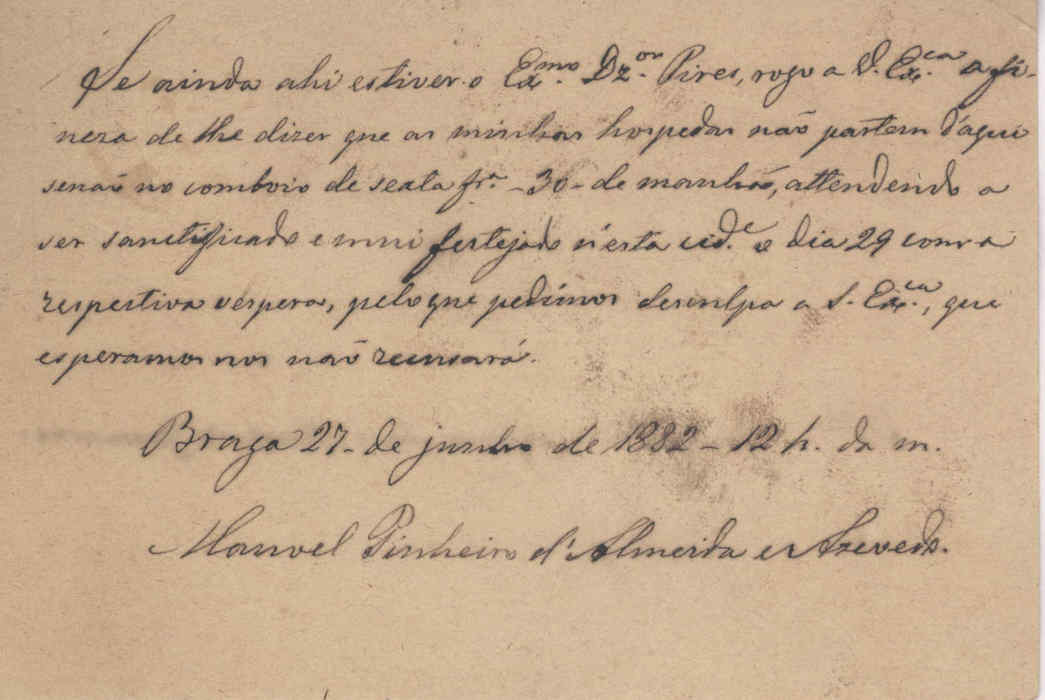 Se ainda ahi estiver o Exmo. Dzor. Pires, rogo a V. Exca. a fi-
neza de lhe dizer que as minhas hospedas não partem d'aqui
senão no comboio de sexta fra. - 30 - de manhã, attendendo a
ser sanctificado e mui festejado n'esta cide. o dia 29 com a
respectiva vespera, pelo que pedimos desculpa a S. Exca., que
esperamos nos não recusará.
Braga 27 - de junho de 1882 - 12 h. da m.
Manoel Pinheiro d'Almeida e Azevedo.